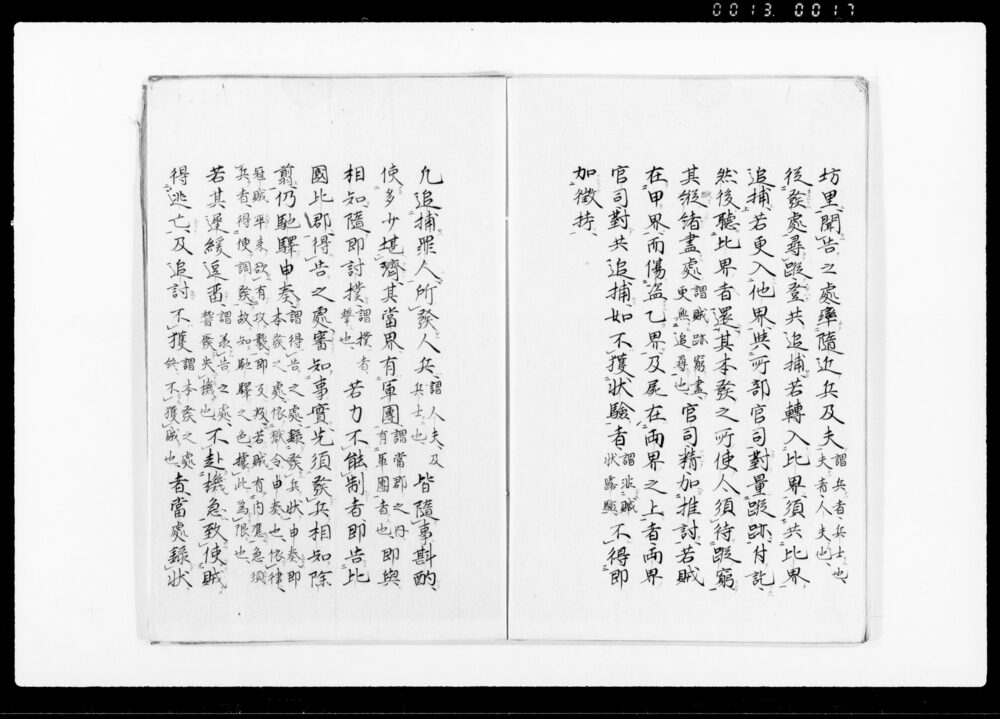 0013 0017
坊里聞告之處率隨近兵及夫謂兵者兵士也夫者人夫也
從發處尋蹤登共追捕若轉入比界須共比界
追捕若更入他界與所部官司對量蹤跡付訖
然後聽比界者還其本發之所使人須待蹤窮
其縱緒盡處謂賊跡窮盡更無追尋也官司精加推討若賊
在甲界而傷盜乙界及屍在兩界之上者兩界
官司對共追捕如不獲狀驗者謂非賊狀露驗不得即
加徵拷
凡追捕罪人所發人兵謂人夫及兵士也皆隨事斟酌
使多少堪濟其當界有軍團謂當郡之內有軍團者也即與
相知隨即討撲謂撲者擊也若力不能制者即告比
國比郡得告之處審知事實先須發兵相知除
翦仍馳驛申奏謂得告之處錄發兵狀申奏即本發之處依獄令申奏也依律
寇賊卒來欲有攻襲即反叛若賊有內應急須兵者得便調發故知馳驛之色據此為限也
若其遲緩逗留謂承告之處暫廢失機也不赴機急致使賊
得逃亡及追討不獲謂本發之處終不獲賊也者當處錄狀